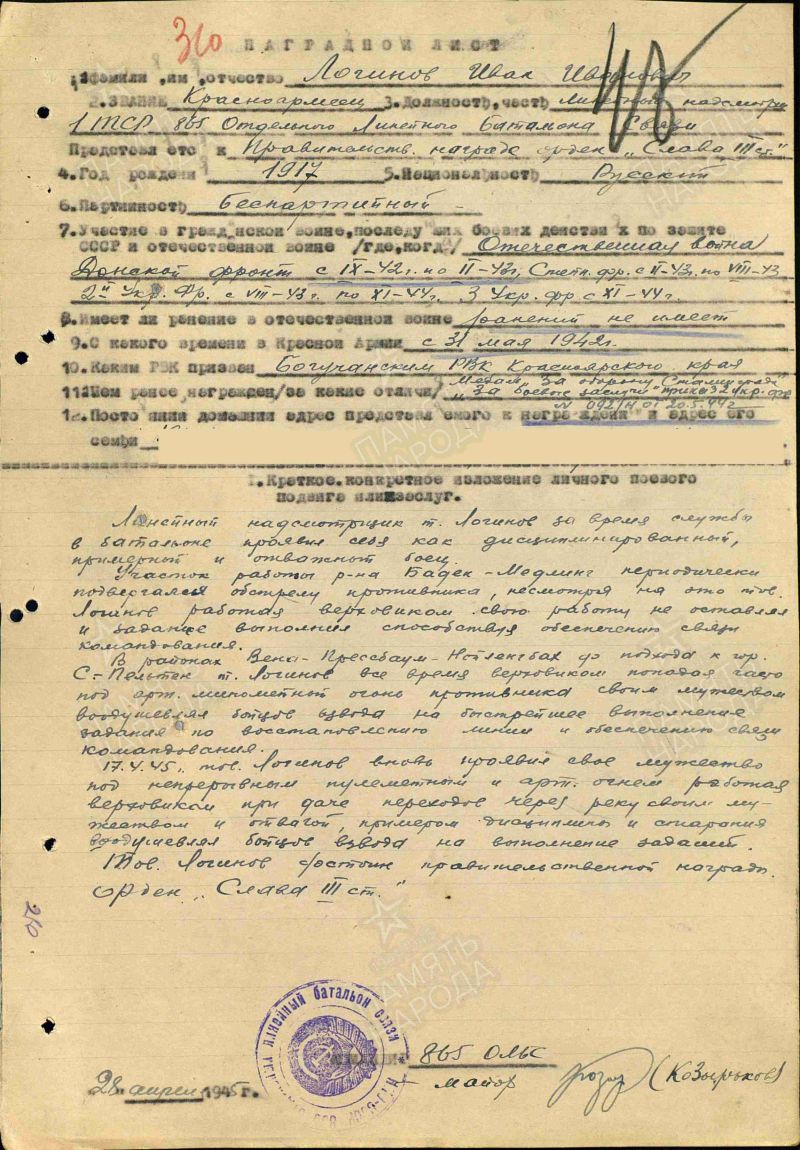 310
НАГРАДНОЙ ЛИСТ
1. Фамили ,им ,отчество Логинов Иван Иванович
2. Звание Красноармеец 3. Должность, часть Линейный надсмотрщик
1 ТСР 865 Отдельного Линейного Батальона Связи
Представл етс к Правительств. награде орден "Слава III ст."
4. Год рождени 1917 5. Национальность Русский
6. Партийность Беспартийный
7. Участие в гражд нской войне, последу щих боевых действи х по защите
СССР и отечественной войне /где, когд / Отечественная война
Донской фронт с IX-42 г. по II-43 г., Степн. фр. с II-43 г. по VIII-43
2й Укр. Фр. с VIII-43 г. по XI-44 г. 3 Укр. фр с XI-44 г.
8. Имеет ли ранение в отечественной войне ранений не имеет
9. С какого времени в Красной Армии с 31 мая 1942 г.
10. Каким РВК призван Богучанским РВК Красноярского края
11. Чем ранее награжден /за какие отличи / Медаль "За оборону Сталинграда"
"За боевые заслуги" приказ 2 Укр. фр
N 092/н от 20.5.44 г
12. Посто нный домашний адрес представл емого к награждени и адрес его
семьи
1. Краткое, конкретное изложение личного боевого
подвига или заслуг.
Линейный надсмотрщик т. Логинов за время службы
в батальоне проявил себя как дисциплинированный,
примерный и отважный боец.
Участок работы р-на Баден-Медлинг периодически
подвергался обстрелу противника, несмотря на это тов.
Логинов работая верховиком свою работу не оставлял
и задание выполнял способствуя обеспечению связи
командования.
В районах Вена-Прессбаум-Нойленгбах до подхода к гор.
С-Пельтен т. Логинов все время верховиком попадая часто
под арт. минометный огонь противника своим мужеством
воодушевлял бойцов взвода на быстрейшее выполнение
задания по восстановлению линии и обеспечению связи
командования.
17.4.45 г. тов. Логинов вновь проявил свое мужество
под непрерывным пулеметным и арт. огнем работая
верховиком при даче переходов через реку своим му-
жеством и отвагой, примером дисциплины и старания
воодушевлял бойцов взвода на выполнение заданий.
Тов. Логинов достоин правительственной награды.
орден "Слава III ст."
210
линейный батальон связи
865 ОЛБС
28 апреля 1945 г.
майор (Козырьков)
ПАМЯТЬ НАРОДА